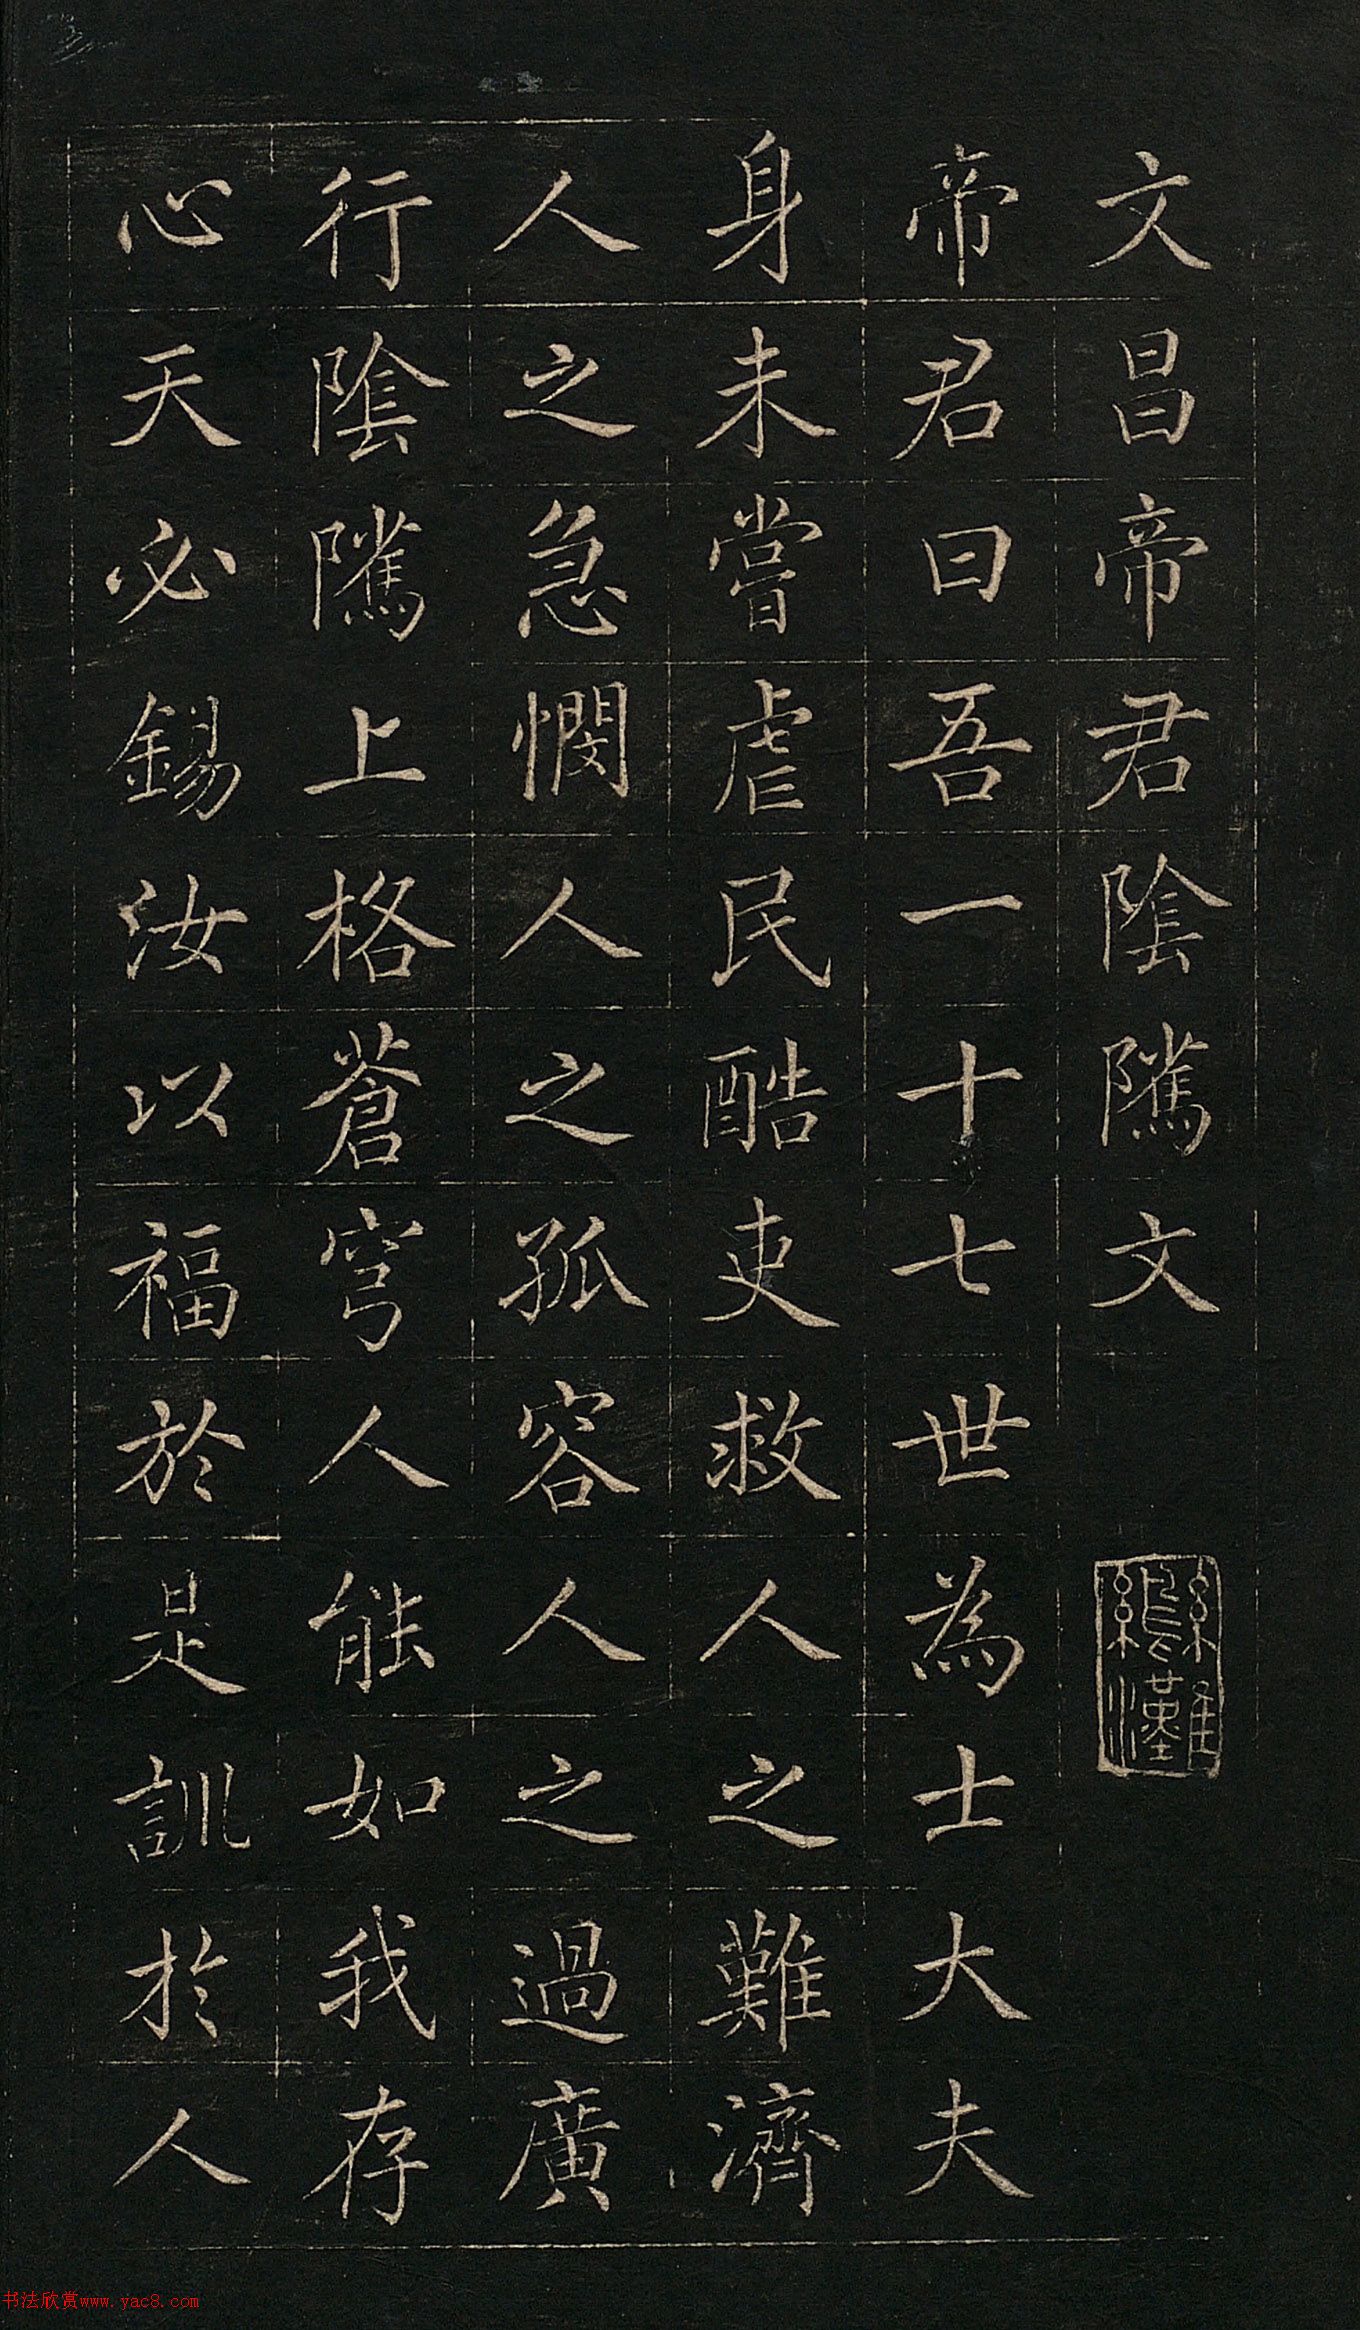 文昌帝君陰隲文
帝君曰吾一十七世為士大夫
身未嘗虐民酷吏救人之難濟
人之急憫人之孤容人之過廣
行陰隲上格蒼穹人能如我存
心天必錫汝以福於是訓於人
书法欣赏www.yac8.com